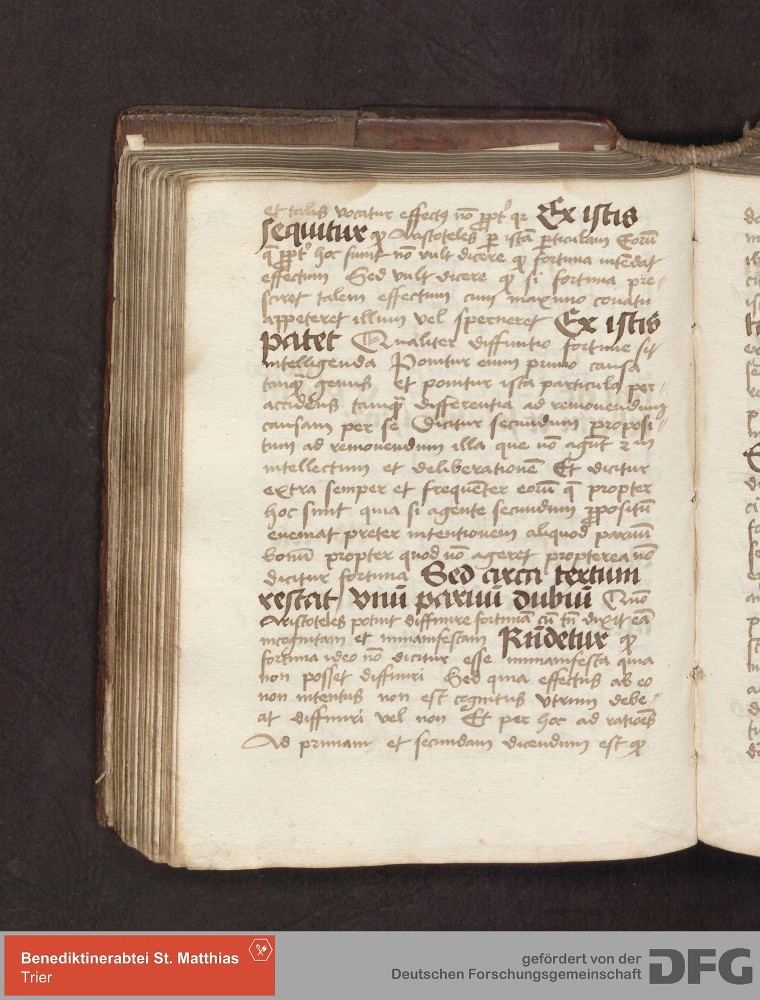 et talis vocatur effectꝯ nō ꝓpt' qr Ex istis
sequitur ꝙ Aristoteles ꝑ istā ꝑticulam Eorū
q̄ ꝓpt' hoc sunt nō vult dicere ꝙ fortuna intēdat
effectum Sed vult dicere ꝙ si fortuna pre⸗
sciret talem effectum cum maximo conatu
appeteret illum vel sperneret Ex istis
patet Qualiter diffinitio fortune sit
intelligenda Ponitur enim primo causa
tanqȝ genus Et ponitur ista particula per⸗
accidens tanqȝ differentia ad remouendum
causam per se Dicitur secundum proposi⸗
tum ad remouendum illa que nō agūt
intellectum et deliberationē Et dicitur
extra semper et frequēter eorū q̄ propter
hoc sunt quia si agente secundum ꝓpositū
eueniat preter intentionem aliquod paruū
bonū propter quod nō ageret propterea nō
dicitur fortuna Sed circa tertium
restat vnū paruū dubiū Quō
Aristoteles potuit diffinire fortunā cū tn̄ dixit eā
incognitam et inmanifestam Rn̄detur ꝙ
fortuna ideo nō dicitur esse inmanifesta quia
non posset diffiniri Sed quia effectus ab eo
non intentus non est cognitus Vtrum debe⸗
at diffiniri vel non Et per hoc ad ratiōes
Ad primam et secundam dicendum est ꝙ
Benediktinerabtei St. Matthias
Trier
gefördert von der
Deutschen Forschungsgemeinschaft
DFG